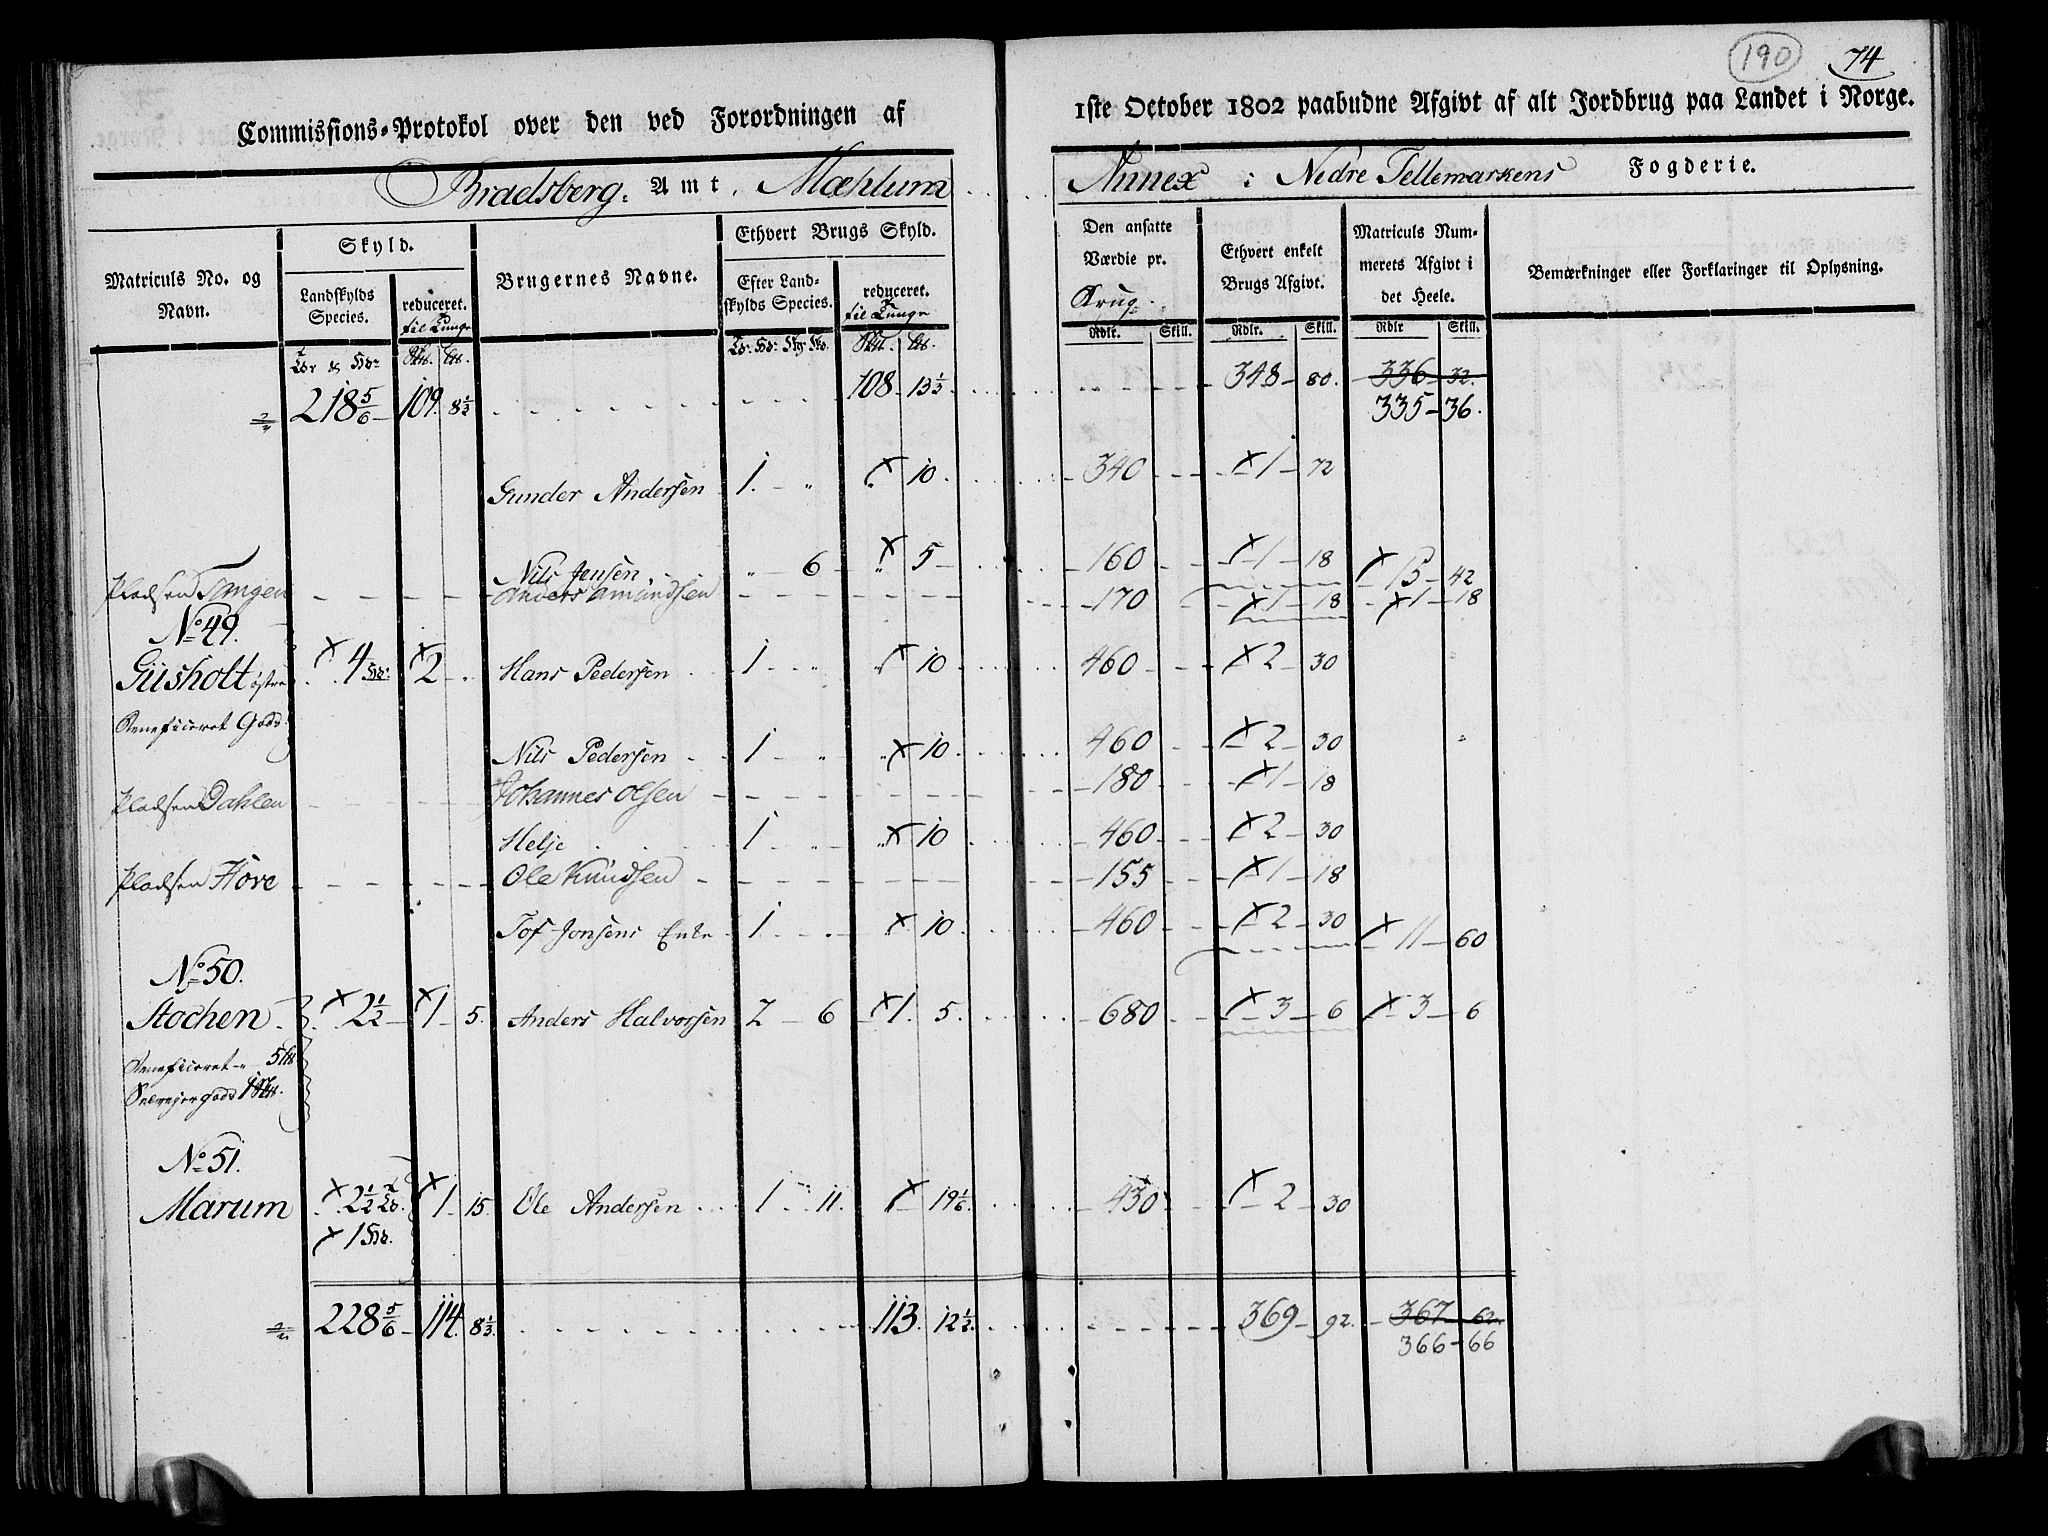 190 74
Commissions-Protokol over den ved Forordningen af 1ste October 1802 paabudne Afgivt af alt Jordbrug paa Landet i Norge.
Bradsberg Amt. Mæhlum Annex i Nedre Tellemarkens Fogderie.
Matriculs No. og Navn. Skyld. Landskylds Species. reduceret. til Tunge Brugernes Navne. Ethvert Brugs Skyld. Efter Landskylds Species. reduceret. til Tunge Den ansatte Værdie pr. Brug. Rdlr. Skill. Ethvert enkelt Brugs Afgivt. Rdlr. Skill. Matriculs Nummerets Afgivt i det Heele. Rdlr Skill. Bemærkninger eller Forklaringer til Oplysning.
218 5/6 109. 8 1/3 108. 13 1/3 348 80. 336 32.
335 36.
Gunder Andersen 1. " × 10. 340 × 1 72
Nils Jensen " 6 × 5 160 × 1 18 × 15 42
Pladsen Tangen Anders Amundsen 170 × 1 18 × 1 18
No 49.
Giisholt østre × 4 Hd: × 2 " Hans Pedersen 1 " × 10 460 × 2 30
Beneficeret Gods.
Nils Pedersen 1 " × 10 460 × 2 30
Pladsen Dahlen Johannes Olsen 180 × 1 18
Helje 1 " × 10 460 × 2 30
Pladsen Hove Ole Knudsen 155 × 1 18
Tof Jonsens Enke 1 " × 10 460 × 2 30 × 11 60
No 50.
Stochen × 2 1/2 × 1 5. Anders Halvorsen 2 6 × 1. 5. 680 × 3 6 × 3 6
Beneficeret 5
Selveyergods 1
No 51.
Marum × 2 1/2 × 1 15. Ole Andersen 1 11. × 19 1/6. 430 × 2 30
× 1 Hd.
228 5/6 114. 8 1/3 113. 12 1/2 369 92. 367 62.
366 66